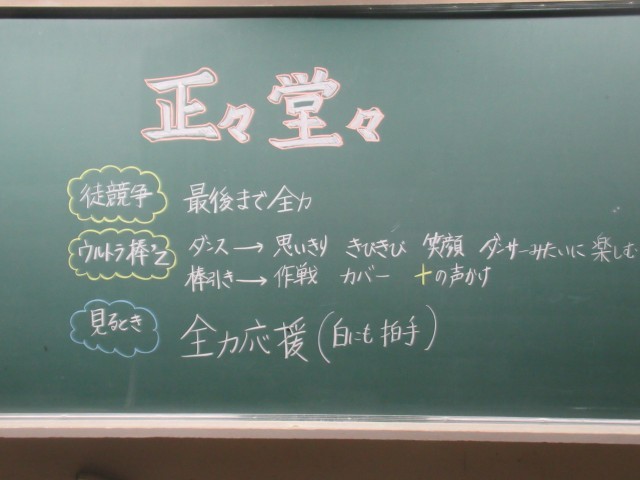 正々堂々
徒競争 最後まで全力
ウルトラ棒'Z ダンス→ 思いきり きびきび 笑顔 ダンサーみたいに楽しむ
棒引き→ 作戦 カバー +の声かけ
見るとき 全力応援(白にも拍手)